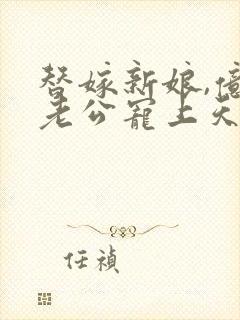 替嫁新娘,億
老公寵上天
任禎